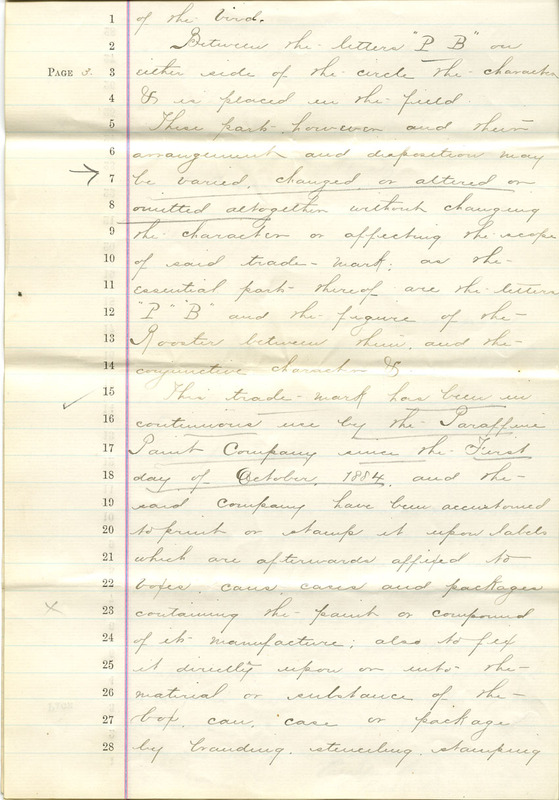 1 of the bird.
2 Between the letters "P B" on
PAGE 3. 3 either side of the circle the character
4 & is placed in the field.
5 These parts however and their
6 arrangement and disposition may
7 be varied, changed or altered or
8 omitted altogether without changing
9 the character or affecting the scope
10 of said trade-mark; as the
11 essential parts thereof are the letters
12 "P" "B" and the figure of the
13 Rooster between them, and the
14 conjunctive character &.
15 This trade-mark has been in
16 continuous use by the Paraffine
17 Paint Company since the First
18 day of October, 1884, and the
19 said Company have been accustomed
20 to print or stamp it upon labels
21 which are afterwards affixed to
22 boxes, cans, cases and packages
23 containing the paint or compound
24 of its manufacture; also to fix
25 it directly upon or into the
26 material or substance of the
27 box, can, case or package
28 by branding, stenciling, stamping